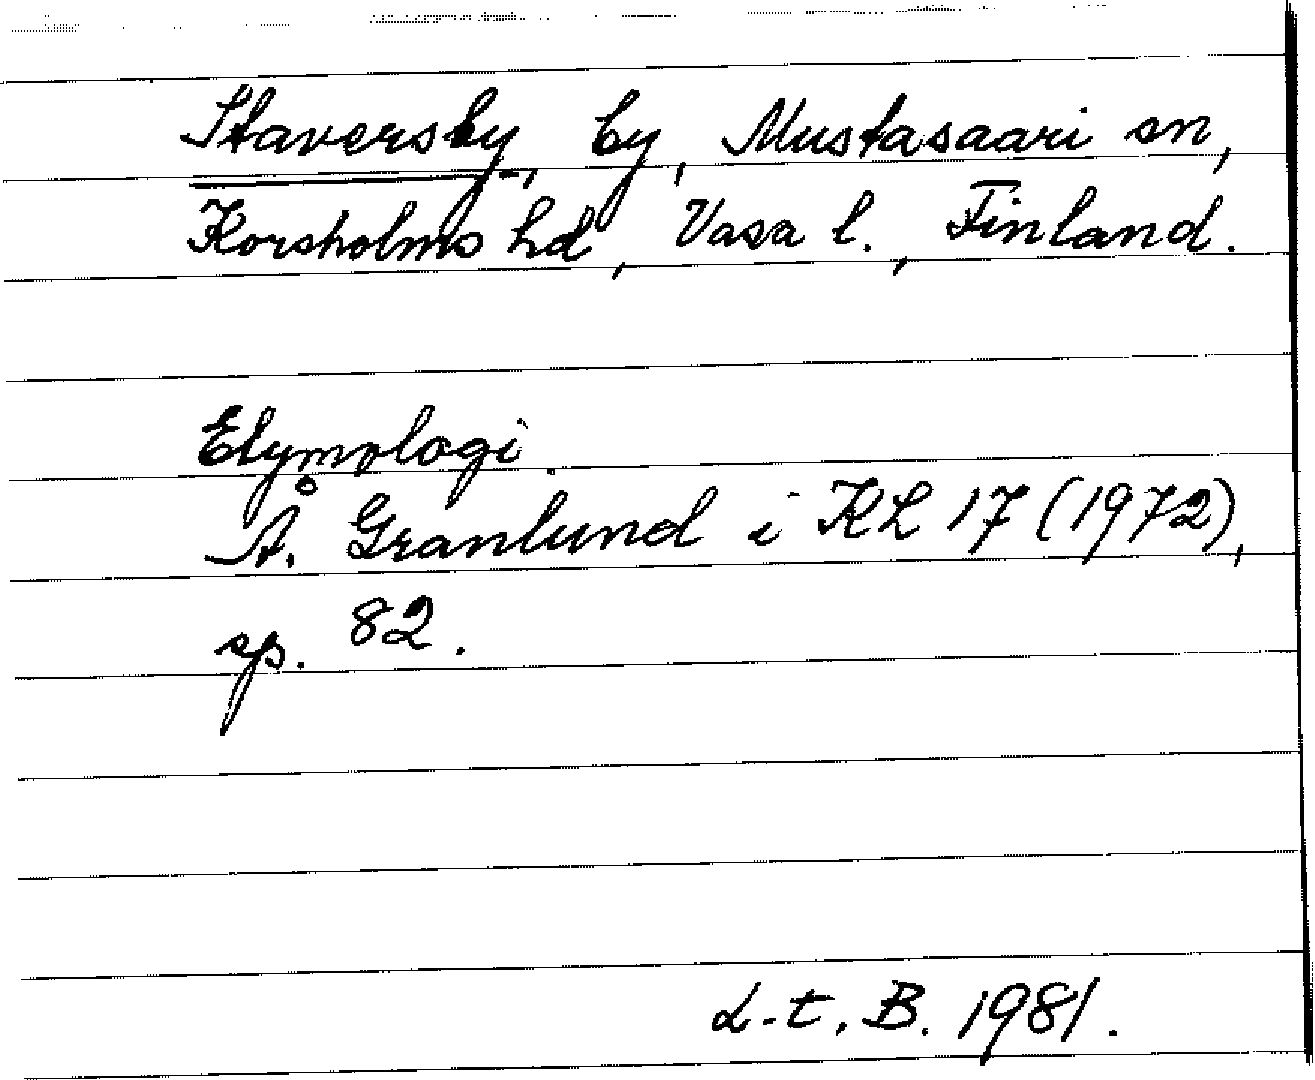 Staversby, by, Mustasaari sn,
Korsholms hd, Vasa l., Finland.
Etymologi.
Å. Granlund i KL 17 (1972),
sp. 82.
L-t. B. 1981.